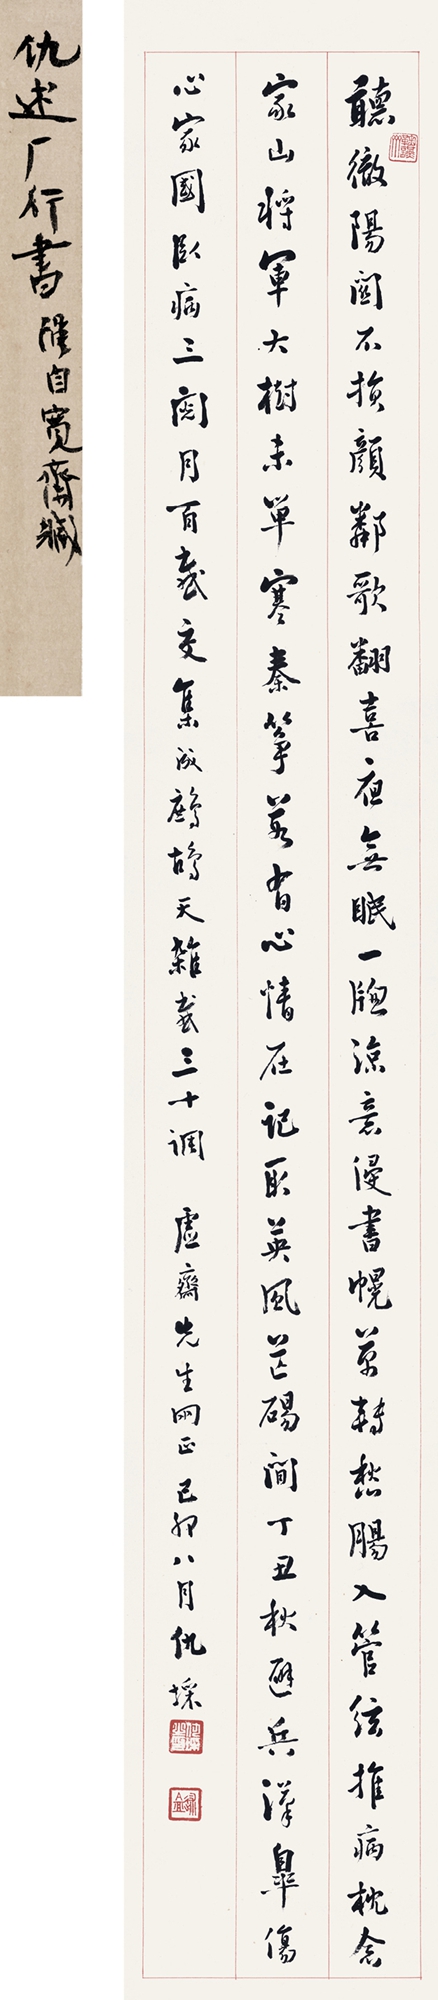 仇述厂行書 自寬齋藏
聽徹陽關不損顏鄰歌翻喜夜無眠一牕涼意浸書幌萬轉愁腸入管絃推病枕念
家山將軍大樹未單寒秦箏若有心情在記取英風芒碭間丁丑秋避兵漢皋傷
心家國臥病三閱月百感交集成鷓鴣天雜感三十調 虛齋先生正己卯八月仇埰